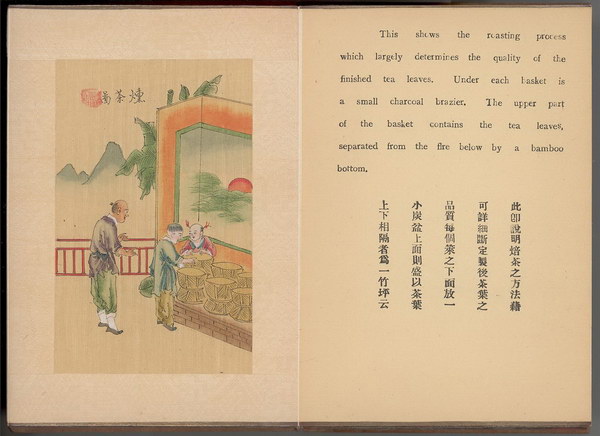 燻茶圖
This shows the roasting process
which largely determines the quality of the
finished tea leaves. Under each basket is
a small charcoal brazier. The upper part
of the basket contains the tea leaves,
separated from the fire below by a bamboo
bottom.
此卽說明焙茶之方法藉
可詳細斷定製後茶葉之
品質每個之下面放一
小炭盆上面則盛以茶葉
上下相隔者爲一竹坪云